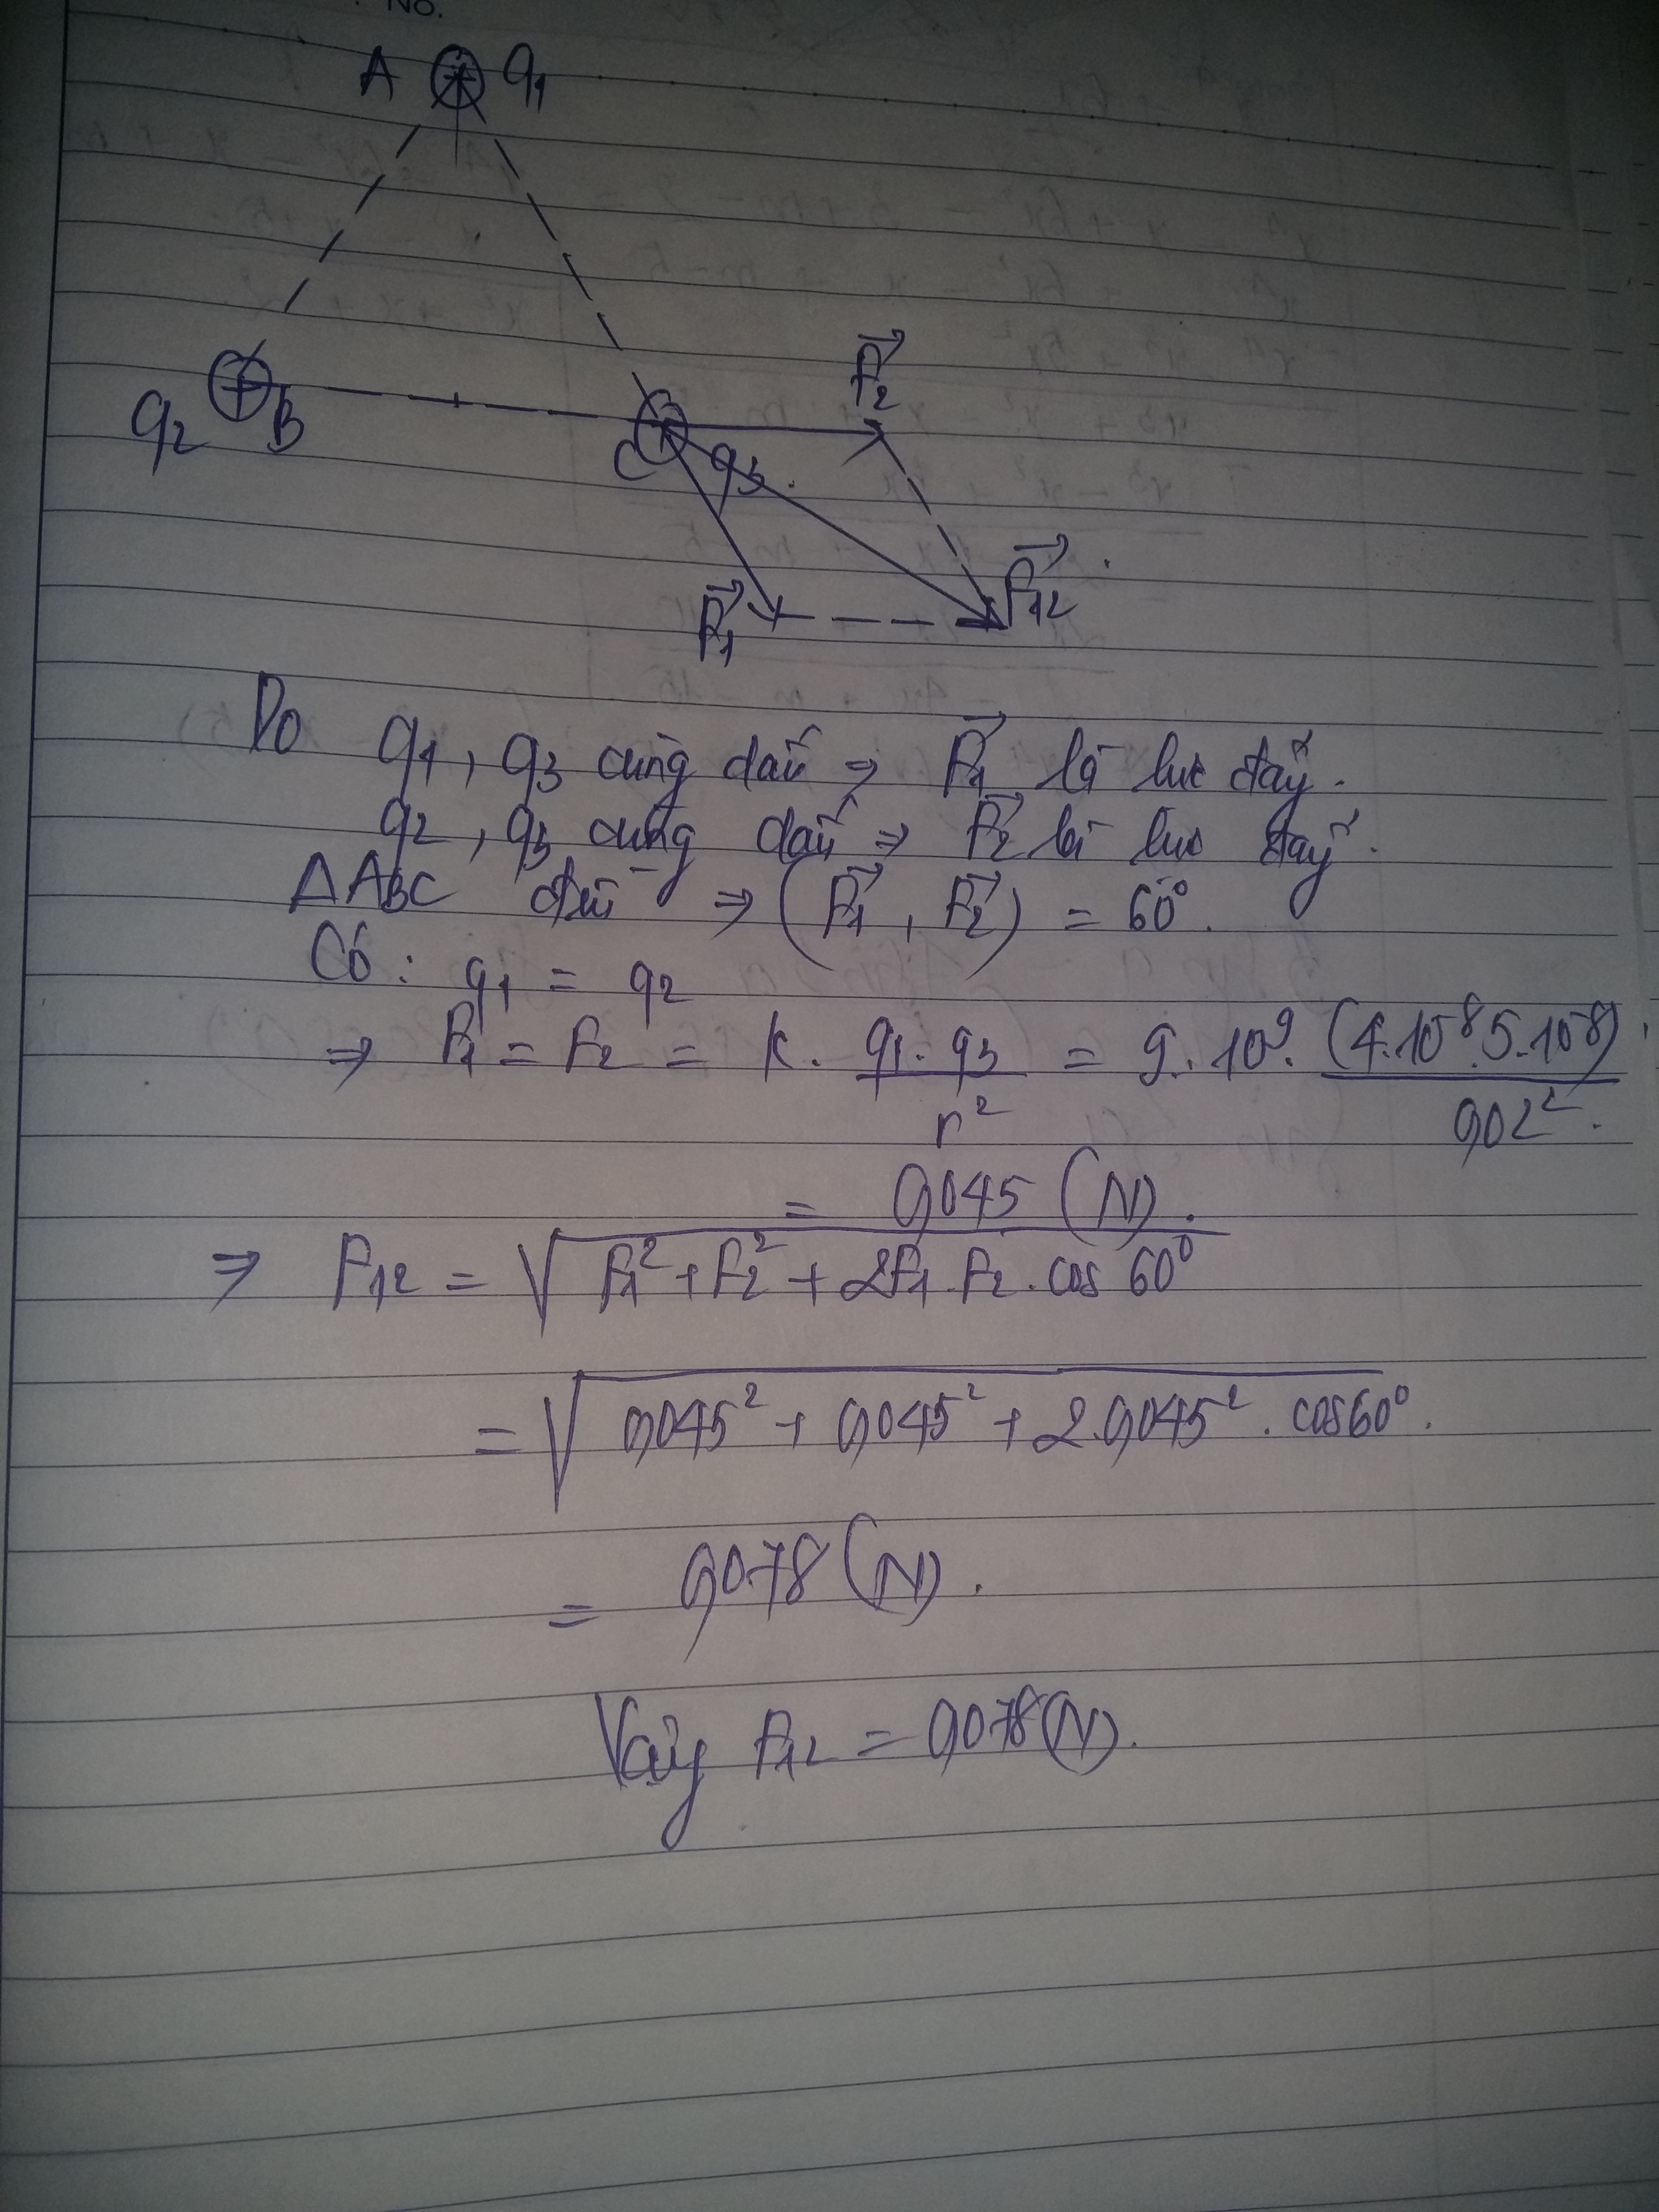 No.
A q₁
F₂
q₂ B
C q₃
F₁ F₁₂
Do q₁, q₃ cùng dấu ⇒ F₁ là lực đẩy.
q₂, q₃ cùng dấu ⇒ F₂ là lực đẩy.
ΔABC đều ⇒ (F₁, F₂) = 60°.
Có: q₁ = q₂
⇒ F₁ = F₂ = k. q₁.q₃ / r² = 9.10⁹. (4.10⁻⁸.5.10⁻⁸) / 0,02².
= 0,045 (N).
⇒ F₁₂ = √(F₁² + F₂² + 2F₁.F₂.cos 60°)
= √(0,045² + 0,045² + 2.0,045².cos60°).
= 0,078 (N).
Vậy F₁₂ = 0,078 (N).